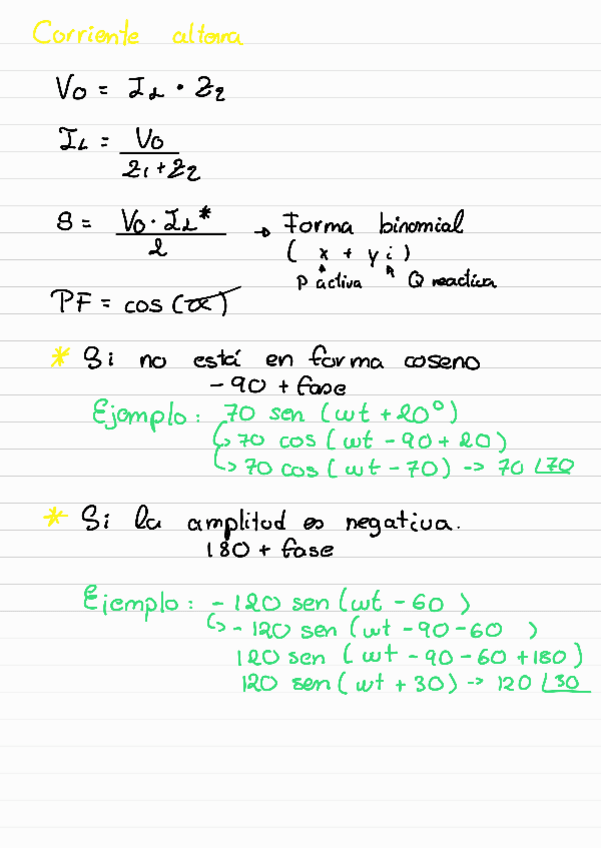 Corriente alterna
Vo = IL · Z2
IL = Vo / Z1 + Z2
S = Vo · IL* / 2 → Forma binomial
( x + y i )
P activa Q reactiva
PF = cos (α)
* Si no está en forma coseno
- 90 + fase
Ejemplo: 70 sen (wt + 20°)
↳ 70 cos (wt - 90 + 20)
↳ 70 cos ( wt - 70) -> 70 ∠70
* Si la amplitud es negativa.
180 + fase
Ejemplo: - 120 sen (wt - 60 )
↳ - 120 sen (wt - 90 - 60 )
120 sen (wt - 90 - 60 + 180)
120 sen (wt + 30) -> 120 ∠30